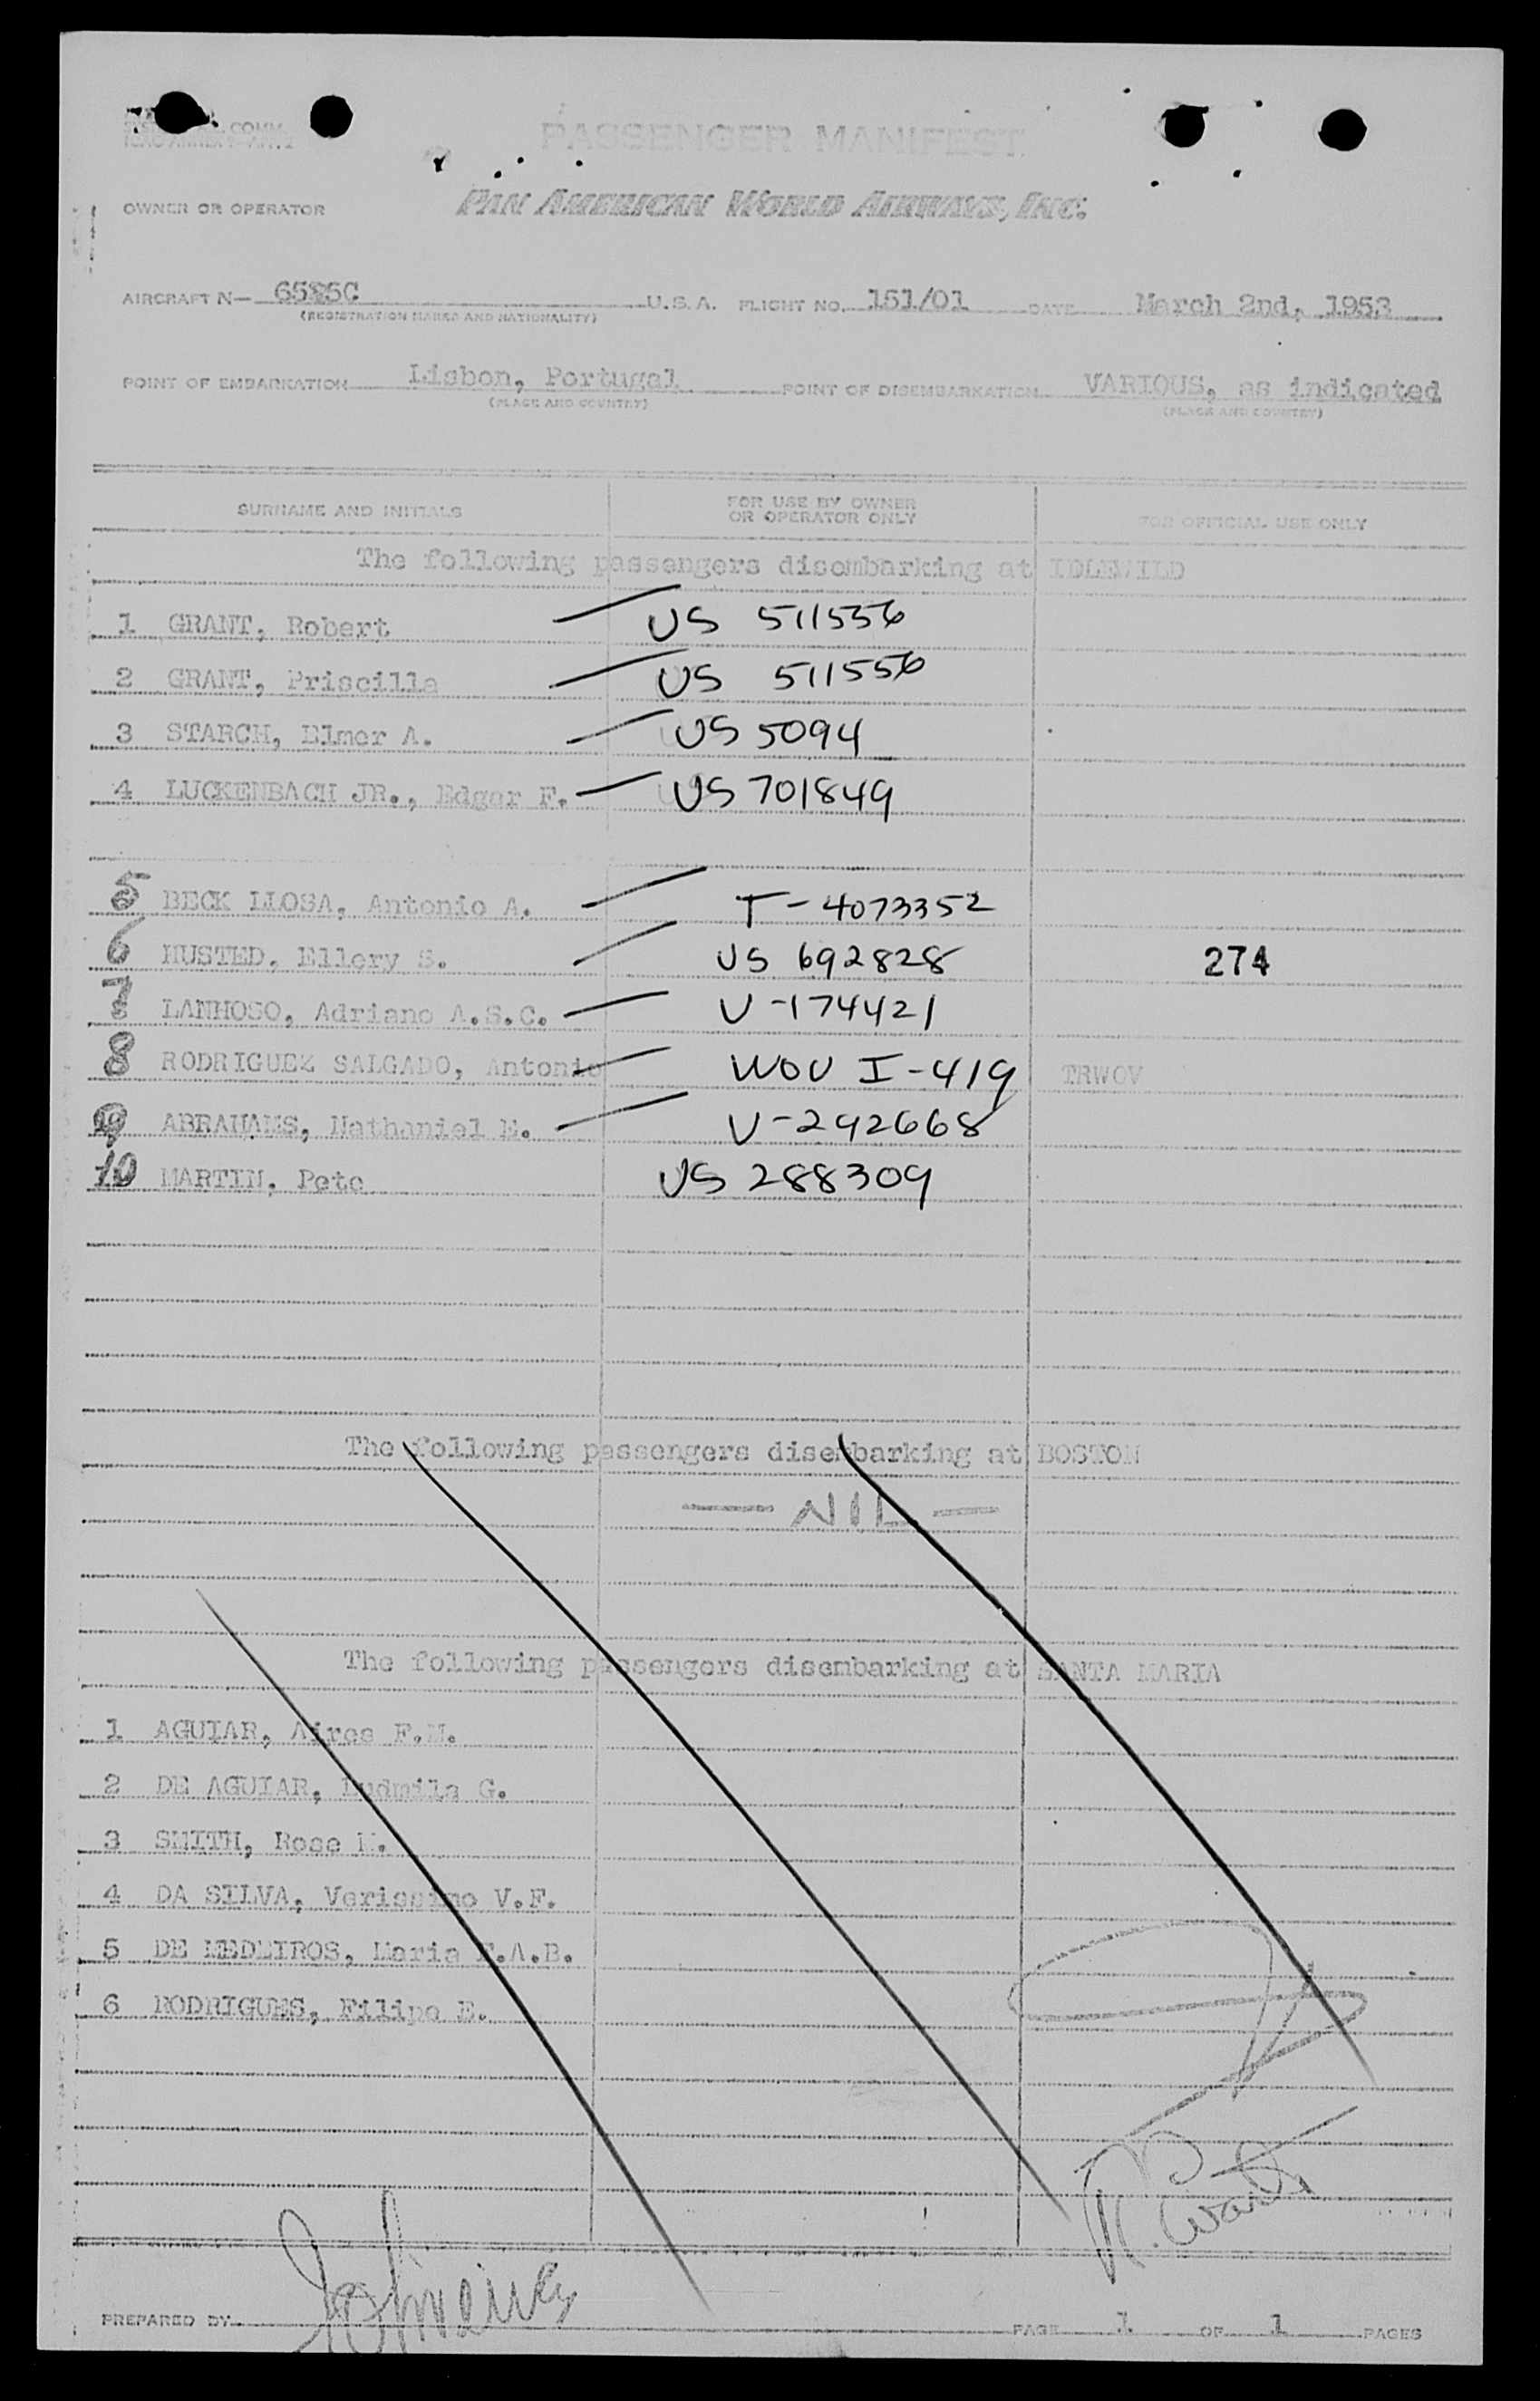 COMM.
PASSENGER MANIFEST
OWNER OR OPERATOR PAN AMERICAN WORLD AIRWAYS, INC.
AIRCRAFT N— 6525C U.S.A. FLIGHT NO. 151/01 DATE March 2nd, 1953
(REGISTRATION MARKS AND NATIONALITY)
POINT OF EMBARKATION Lisbon, Portugal POINT OF DISEMBARKATION VARIOUS, as indicated
(PLACE AND COUNTRY) (PLACE AND COUNTRY)
SURNAME AND INITIALS FOR USE BY OWNER OR OPERATOR ONLY FOR OFFICIAL USE ONLY
The following passengers disembarking at IDLEWILD
1 GRANT, Robert US 511556
2 GRANT, Priscilla US 511556
3 STARCH, Elmer A. US 5094
4 LUCKENBACH JR., Edgar F. US 701849
5 BECK LLOSA, Antonio A. T-4073352
6 HUSTED, Ellery S. US 692828 274
7 LANHOSO, Adriano A.S.C. V-174421
8 RODRIGUEZ SALGADO, Antonio WOV I-419 TRWOV
9 ABRAHAMS, Nathaniel E. V-292668
10 MARTIN, Pete US 288309
The following passengers disembarking at BOSTON
— NIL —
The following passengers disembarking at SANTA MARIA
1 AGUIAR, Aires F.M.
2 DE AGUIAR, Ludmila G.
3 SMITH, Rose M.
4 DA SILVA, Verissimo V.F.
5 DE MEDEIROS, Maria F.A.B.
6 RODRIGUES, Filipe E.
PREPARED BY PAGE 1 OF 1 PAGES